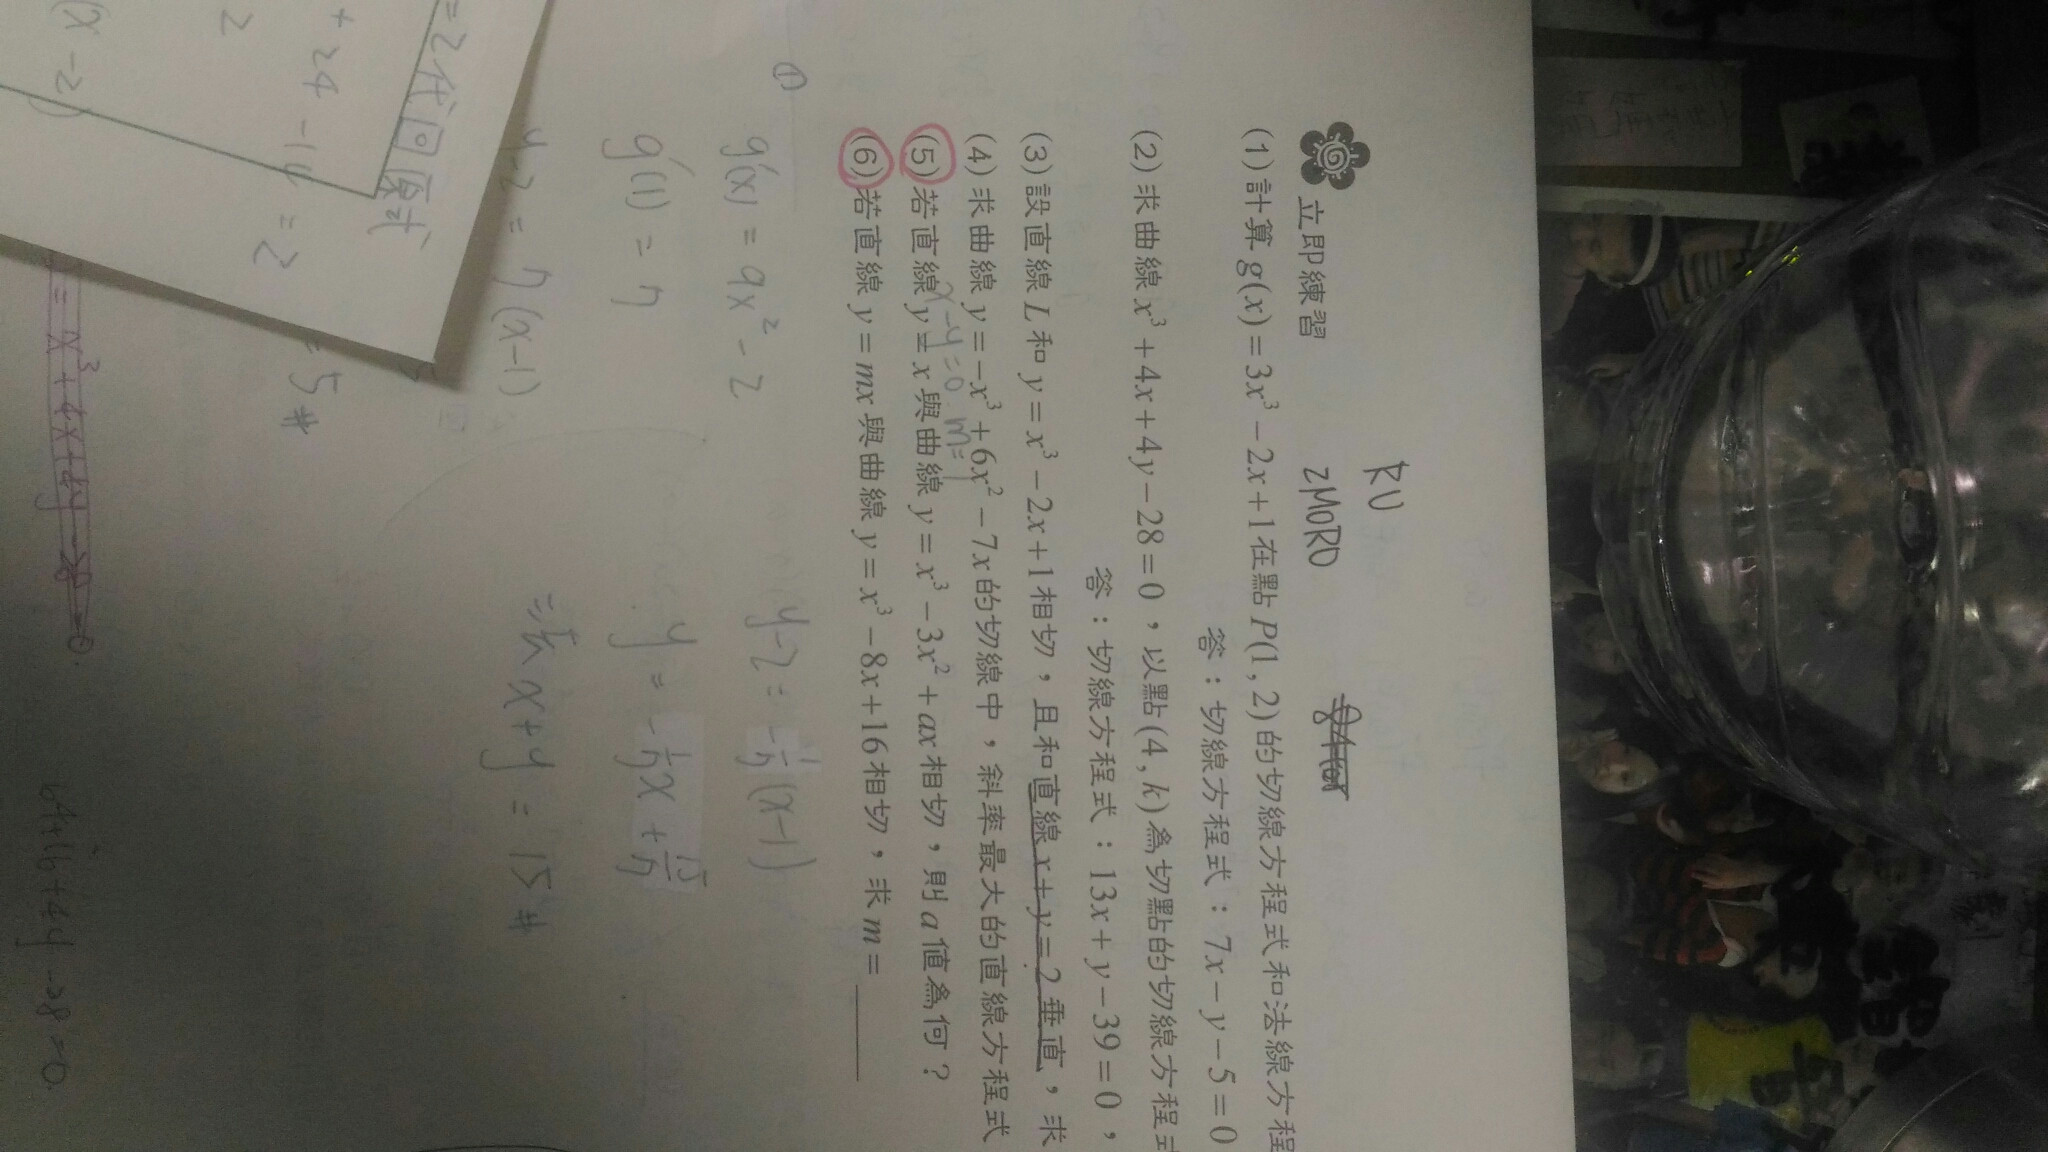 RU
立即練習 zMORD
(1) 計算 g(x)=3x³-2x+1 在點 P(1,2) 的切線方程式和法線方程
答：切線方程式：7x-y-5=0
(2) 求曲線 x³+4x+4y-28=0，以點(4,k)為切點的切線方程式
答：切線方程式：13x+y-39=0，
(3) 設直線 L 和 y=x³-2x+1 相切，且和直線 x+y=2 垂直，求
(4) 求曲線 y=-x³+6x²-7x 的切線中，斜率最大的直線方程式
x-y=0 m=1
(5) 若直線 y=x 與曲線 y=x³-3x²+ax 相切，則 a 值為何？
(6) 若直線 y=mx 與曲線 y=x³-8x+16 相切，求 m=
①
g'(x) = 9x²-2
g'(1) = 7
y-2 = 7(x-1)
y-2 = -1/7(x-1)
y = -1/7x + 15/7
x+7y = 15#
=2代回原式
+ 24 - 14 = 2
= 5#
2
(x-2)
= x³+4x+4y-28=0.
64+16+4y-28=0.